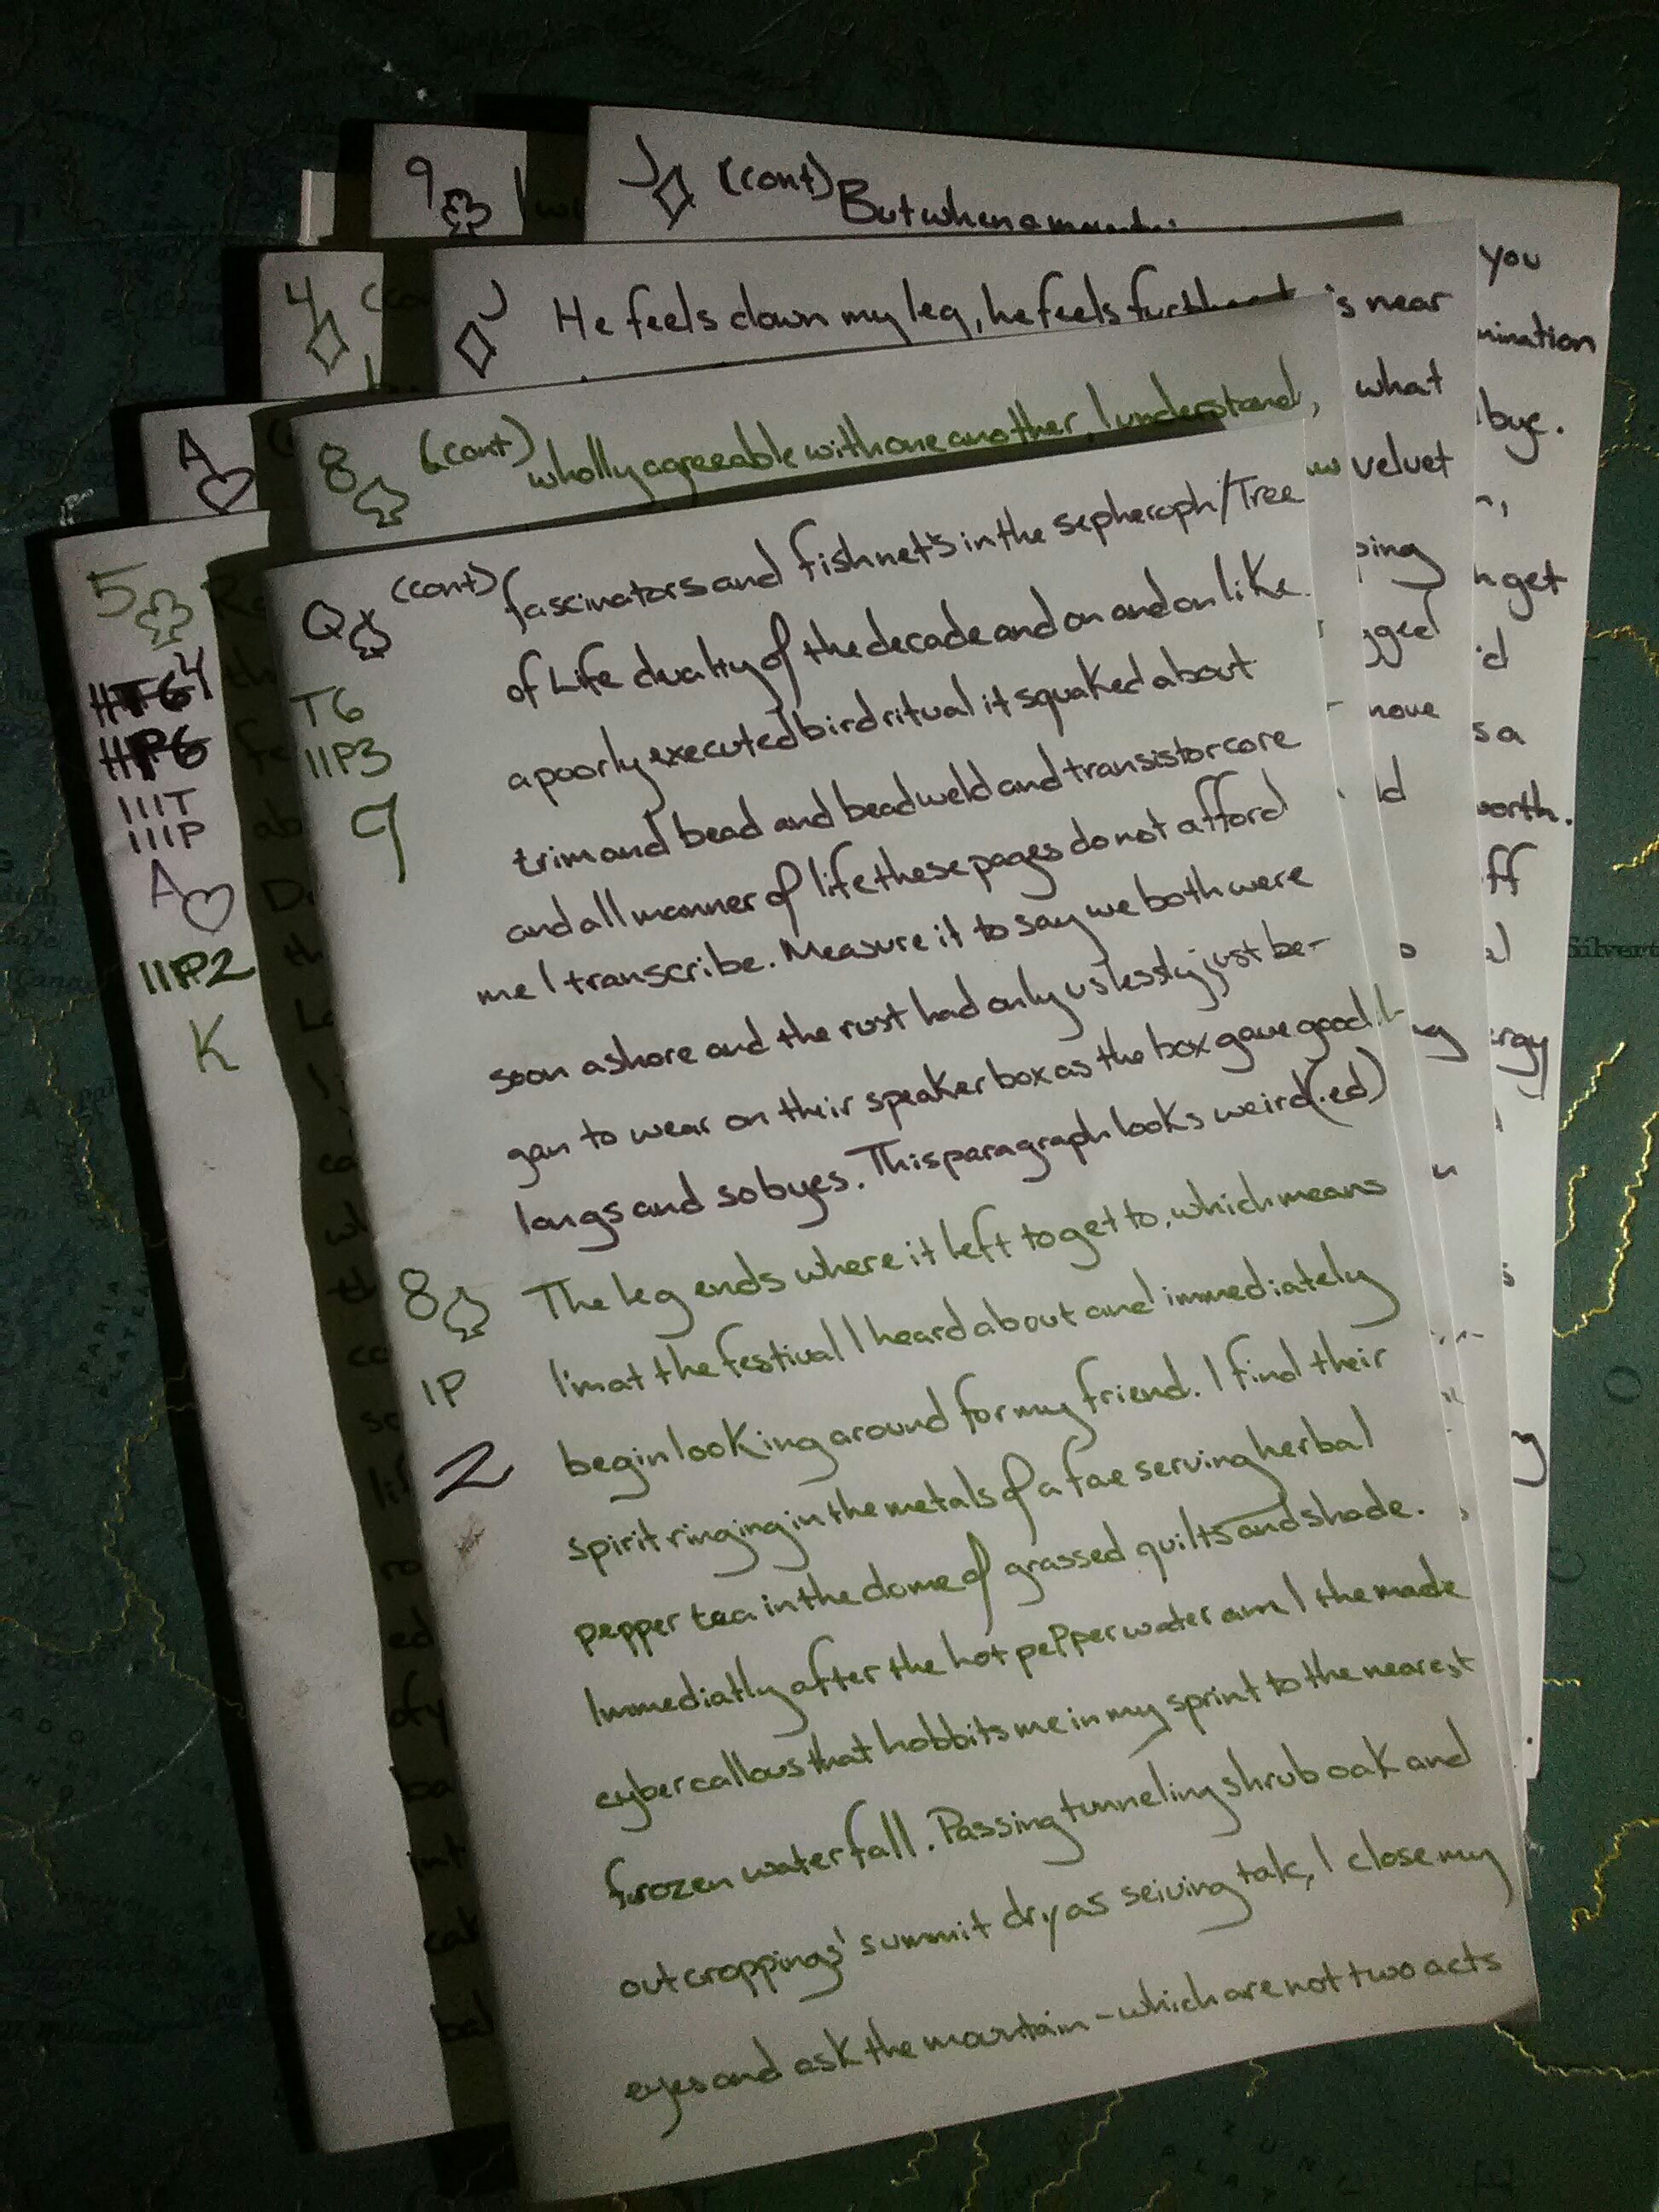 9
J (cont) But when a
you
4
J He feels down my leg, he feels 's near
mination
what
bye.
A
8 (cont) wholly agreeable with one another, I understand,
velvet
5
Q (cont) fascinators and fishnet's in the sepheroph/Tree
ping
n get
of Life duality of the decade and on and on like
gged
T6
a poorly executed bird ritual it squaked about
move
s a
IIP3
trim and bead and bead weld and transistor core
worth.
IIIT
IIIP
9
and all manner of life these pages do not afford
ff
A
me I transcribe. Measure it to say we both were
IIP2
soon ashore and the rust had only uslessly just be-
K
gan to wear on their speaker box as the box gave good
rgy
langs and so byes. This paragraph looks weird (.ed)
8 The leg ends where it left to get to, which means
1P I'm at the festival I heard about and immediately
2 begin looking around for my friend. I find their
spirit ringing in the metals of a fae serving herbal
pepper tea in the dome of grassed quilts and shade.
Immediatly after the hot pepper water am I the made
cyber callous that hobbits me in my sprint to the nearest
frozen waterfall. Passing tunneling shrub oak and
outcroppings' summit dry as seiving talc, I close my
eyes and ask the mountain - which are not two acts
Silvert